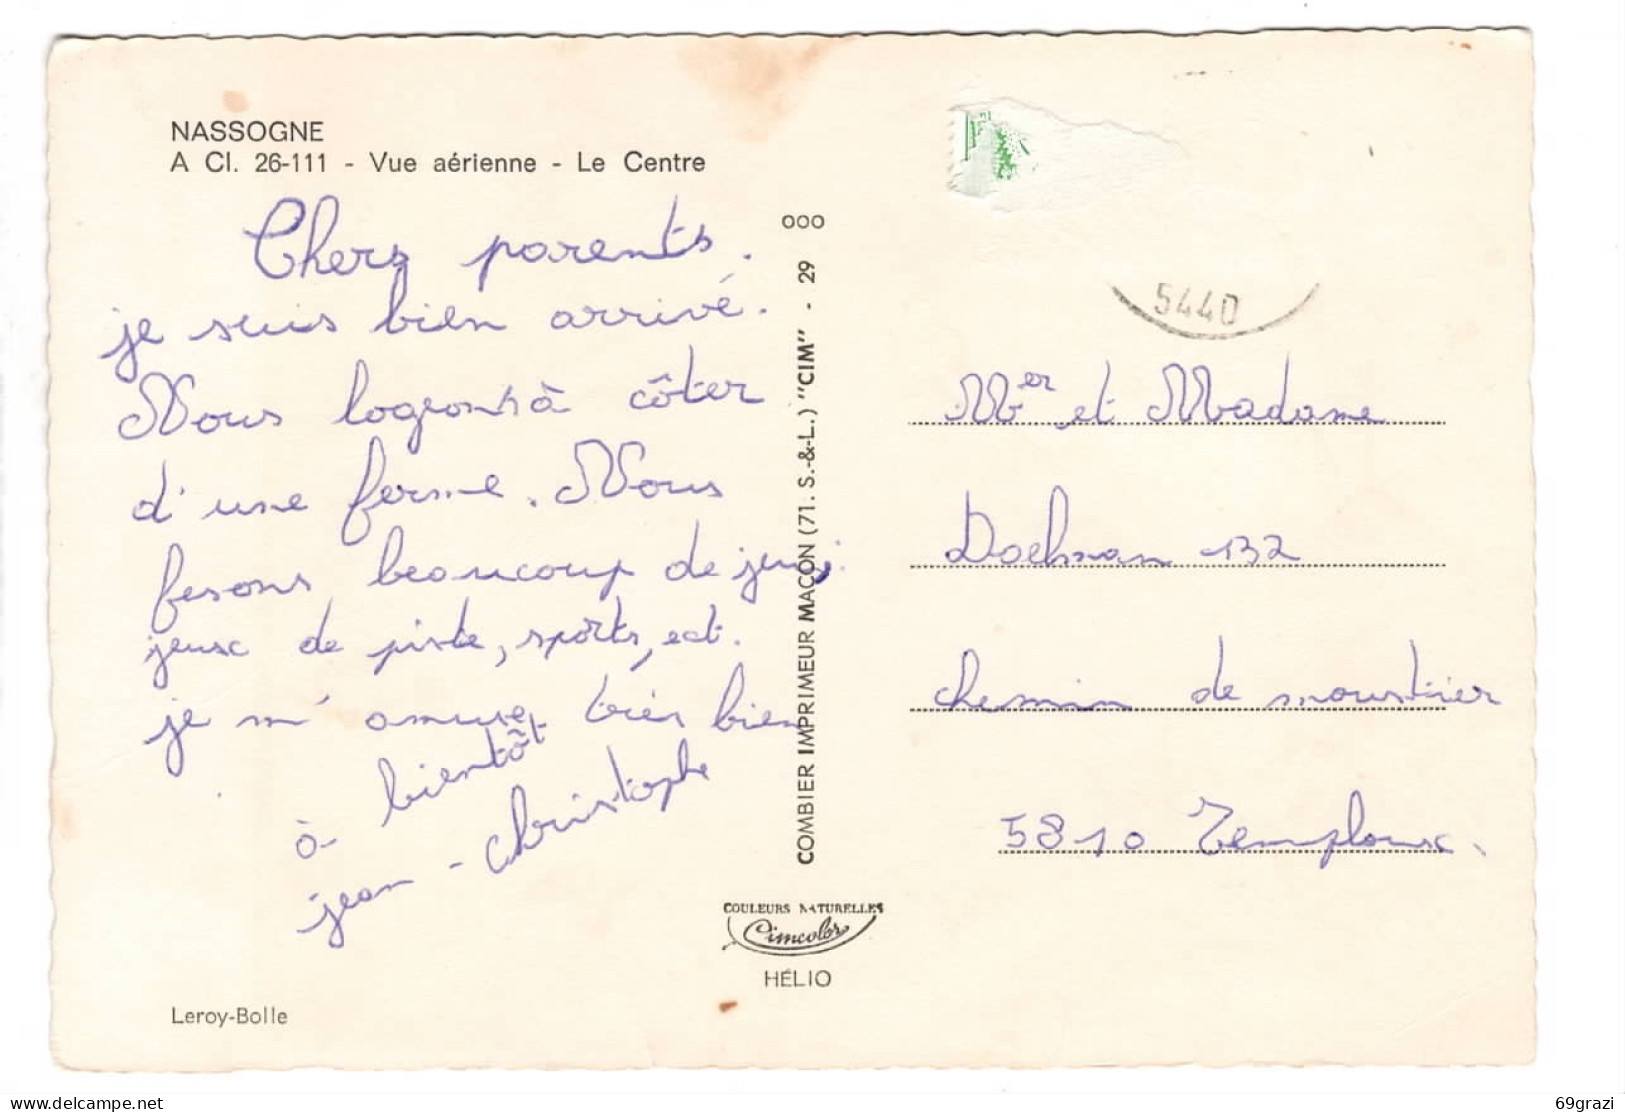 NASSOGNE
A Cl. 26-111 - Vue aérienne - Le Centre
Chers parents.
je suis bien arrivé.
Nous logeons à côter
d'une ferme. Nous
fesons beaucoup de jeux;
jeux de piste, sports, ect.
je m'amuse très bien
à bientôt
jean-christophe
Leroy-Bolle
COMBIER IMPRIMEUR MACON (71. S.-&-L.) "CIM" - 29 000
COULEURS NATURELLES
Cimcolor
HÉLIO
5440
Mer et Madame
132
chemin de moustier
5810 Temploux.
delcampe.net
69grazi